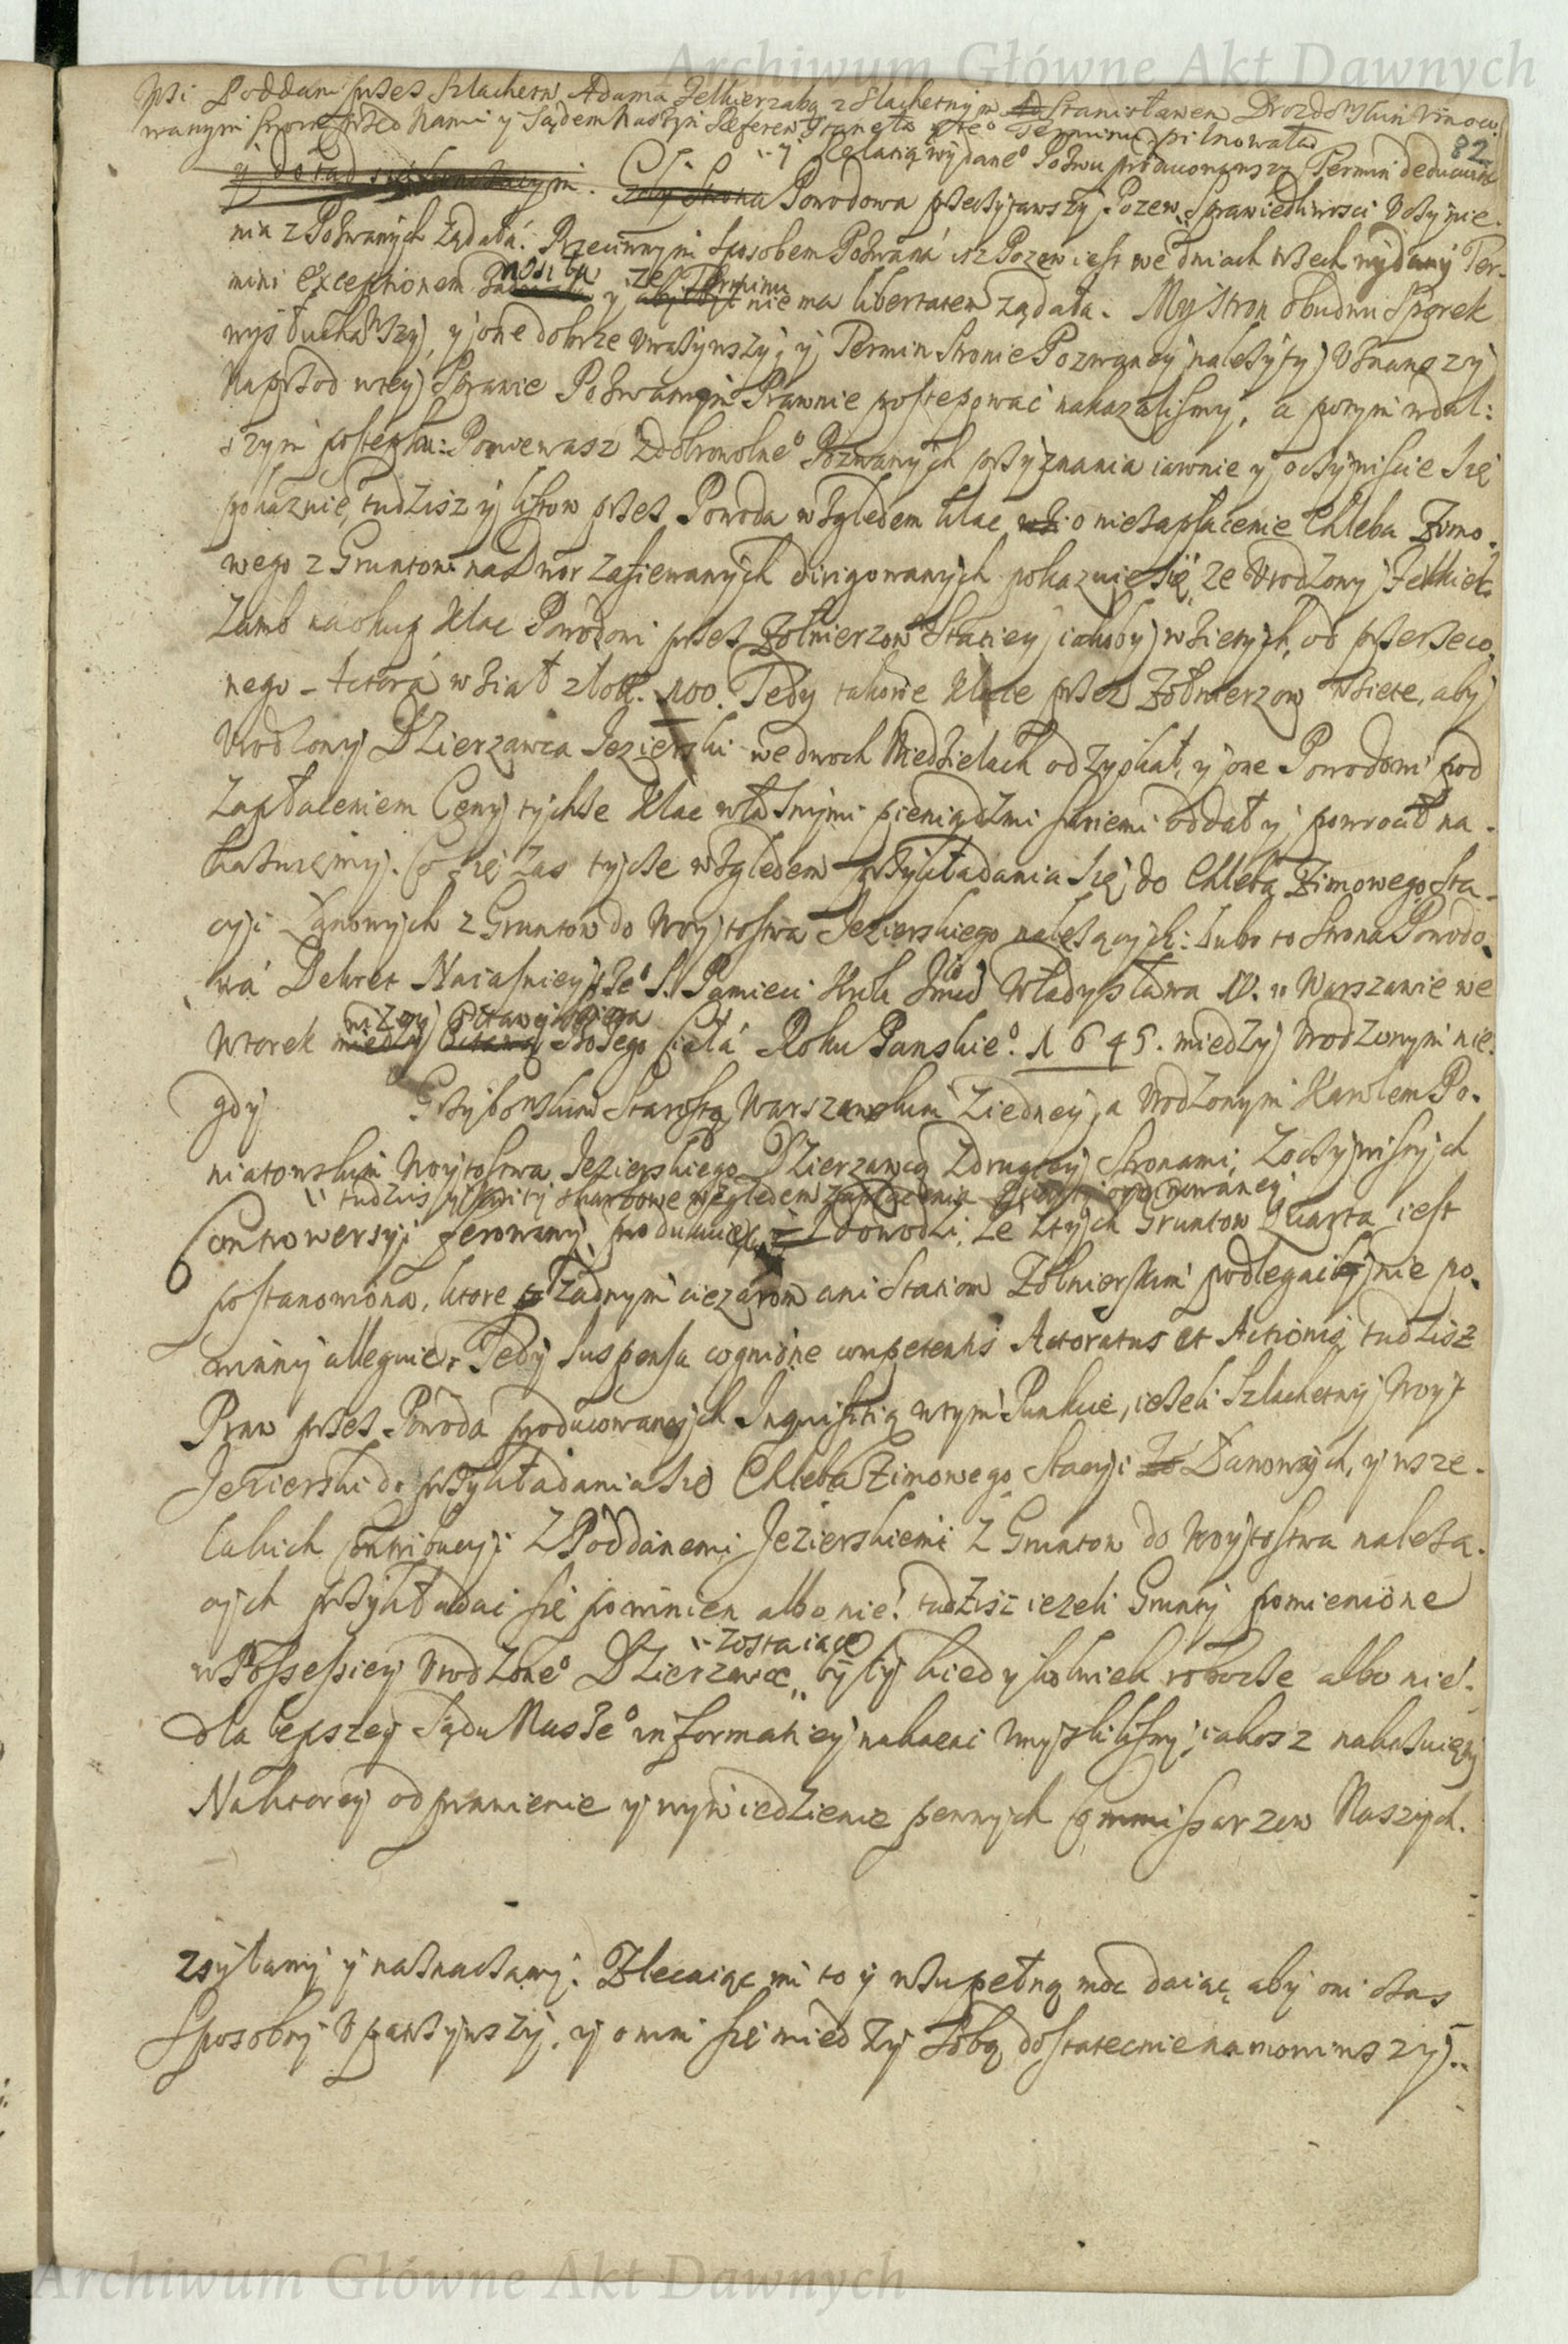 Archiwum Główne Akt Dawnych
82
Poddani przez Szlachetn. Adama Jelkierzaba z Slachetnym Stanisławem Drozdowskim
wanymi przed Nami y Sądem Naszym Referen: stanęła Terminu pilnowała
y Relatią wydane° Pozwu producowawszy Termin
Strona Powodowa przeczytawszy Pozew, Sprawiedliwosci Vczynie-
nia z Pozwanych żądała. Przeciwnym sposobem Pozwana isz Pozew iest we dniach trzech wydany Ter-
mini exceptionem wnosiła y ze Terminu nie ma libertatem ządała. My Stron obudwu Sporek
wysłuchawszy, y one dobrze vważywszy, y Termin Stronie Pozwaney należyty Vznawszy
Naprzod w tey Sprawie Pozwanym Prawnie postempować nakazalismy, a potym w dal:
szym postempku: Poniewasz z dobrowolne° Pozwanych przyznania iawnie y oczywiscie się
pokazuie, tudzisz y listow przez Powoda względem klac o niezapłacenie Chleba Zimo-
wego z Gruntow na Dwor zasiewanych dirigowanych pokazuie się, ze Vrodzony Jelkier-
zamb na okup klac Powodowi przez Zołnierzow Staciey iakoby wziętych, od przerzeco-
nego Actora wział złott. 100. Tedy takowe klace przez Zołnierzow wzięte, aby
Vrodzony Dzierzawca Jezierski we dwoch Niedzielach odzyskał, y one Powodowi pod
zapłaceniem Ceny tychże klac własnymi pieniądzmi swemi oddał y powrocił na-
kazuięmy. Co się zas tycze względem przykładania się do Chleba Zimowego Sta-
cyi Łanowych z Gruntow do Woytostwa Jezierskiego należących: Lubo to Strona Powodo-
wa Dekret Naiasnieysze° S. Pamieci Krola Jmci Władysława IV. w Warszawie we
Wtorek w Oktawy Bożego Ciała Roku Panskie°. 1645. między Vrodzonym nie-
gdy Grzybowskim Starostą Warszawskim z iedney, a Vrodzonym Karolem Po-
niatowskim Woytostwa Jezierskiego Dzierzawcą z drugiey Stronami, z oczywistych
tudzisz y kwity skarbowe względem zapłacenia
Controwersyi ferowany, producuie, y dowodzi, że z tych Gruntow Quarta iest
postanowiona, ktore żadnym ciezarom ani Staciom Zołnierskim podlegać nie po-
winny alleguie. Tedy suspensa cognitione competentis Actoratus et Actionis, tudzisz
Praw przez Powoda producowanych Inquisitią w tym Punkcie, iezeli Szlachetny Woyt
Jezierski do przykładania się Chleba Zimowego, Stacyi Łanowych, y wsze-
lakich contribucyi z Poddanemi Jezierskiemi z Gruntow do Woytostwa należą-
cych przykładać się powinien albo nie! tudzisz iezeli Grunty pomienione
w Possessiey Vrodzone° Dzierzawce zostaiące były kiedykolwiek robocze albo nie!
dla lepszey Sądu Nasze° informatiey nakazać vmyslilismy, iakosz nakazuięmy
Na ktorey odprawienie y wywiedzienie pewnych Commissarzow Naszych.
zsyłamy y naznaczamy. Zlecaiąc im to y w zupełną moc daiąc, aby oni czas
sposobny vpatrzywszy, y o nim się między sobą dostatecznie namowiwszy.
Archiwum Główne Akt Dawnych